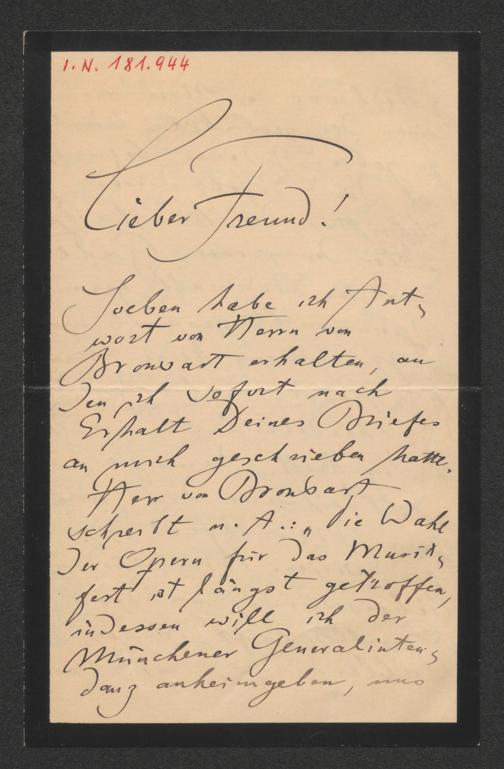 I.N. 181.944
Lieber Freund!
Soeben habe ich Ant-
wort von Herrn von
Bronsart erhalten, an
den ich sofort nach
Erhalt Deines Briefes
an mich geschrieben hatte.
Herr von Bronsart
schreibt u. A.: „Die Wahl
der Opern für das Musik-
fest ist längst getroffen,
indessen will ich der
Münchener Generalinten-
danz anheimgeben, uns